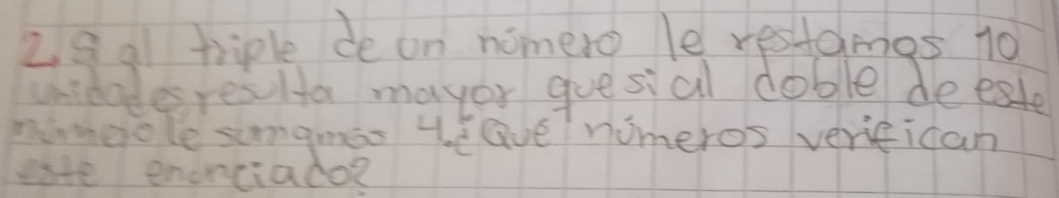 2. Si al triple de un número le restamos 10
unidades resulta mayor que si al doble de este
número le sumamos 4. ¿Qué números verifican
este enunciado?